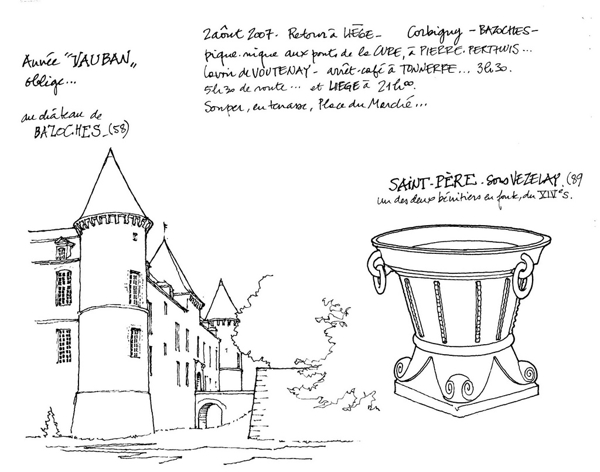 Année "VAUBAN"
oblige...
au château de
BAZOCHES_(58)
2 août 2007. Retour à LIÈGE_ Corbigny - BAZOCHES -
pique-nique aux ponts de la CURE, à PIERRE-PERTHUIS...
Lavoir de VOUTENAY - arrêt-café à TONNERRE... 3h.30.
5h.30 de route... et LIEGE à 21h00.
Souper, en terrasse, Place du Marché...
SAINT-PÈRE-sous VEZELAY. (89
un des deux bénitiers en fonte, du XIVe s.